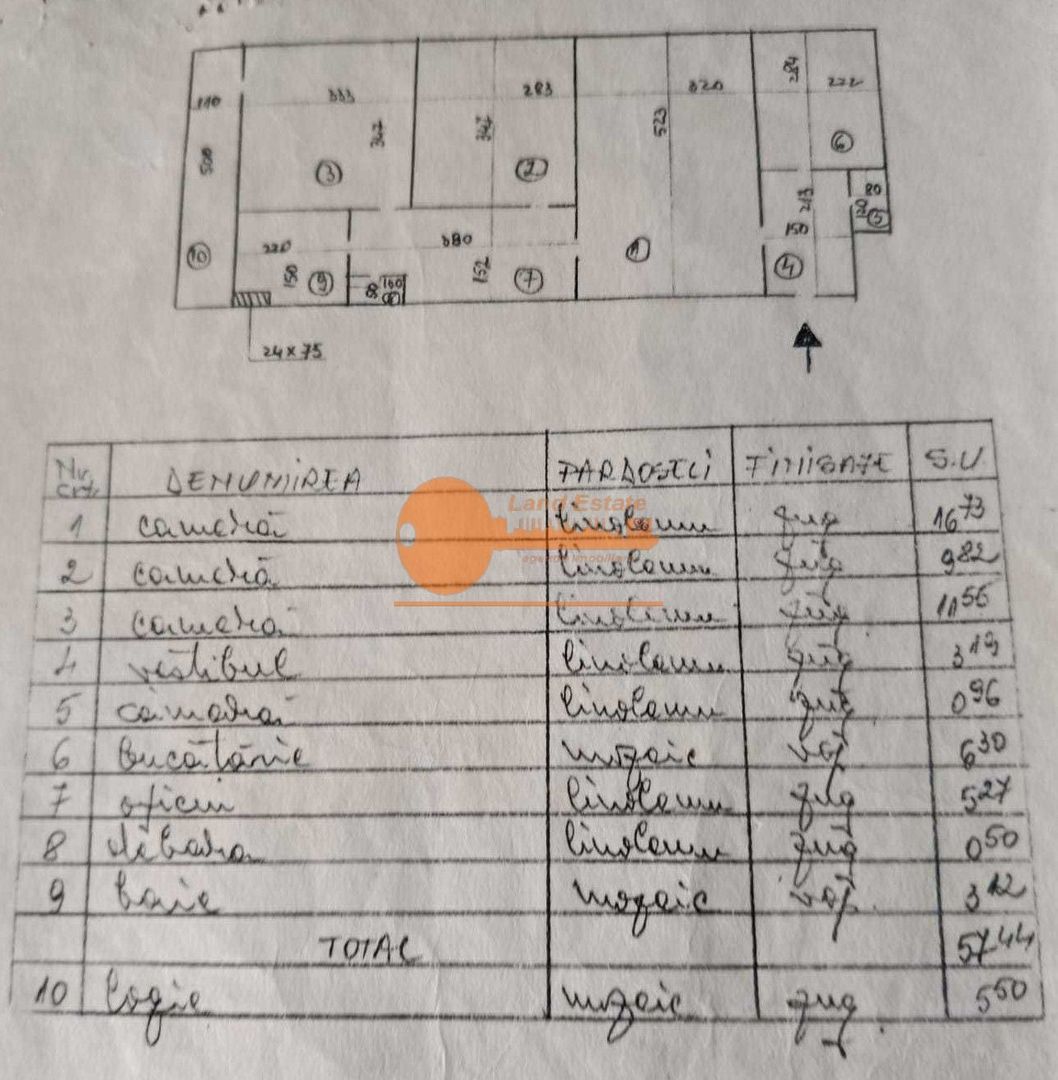 110
333
283
320
284
222
500
347
347
523
3
2
6
213
80
120
5
220
380
150
10
150
9
100
80
8
152
7
1
4
24 x 75
Nr. crt. DENUMIREA PARDOSELI FINISAJE S.U.
1 cameră linoleum zug 16 73
2 cameră linoleum zug 9 82
3 cameră linoleum zug 11 56
4 vestibul linoleum zug 3 19
5 cămară linoleum zug 0 96
6 bucătărie mozaic vop 6 30
7 oficiu linoleum zug 5 27
8 debara linoleum zug 0 50
9 baie mozaic vop. 3 12
TOTAL 57 44
10 logie mozaic zug 5 50
Land Estate